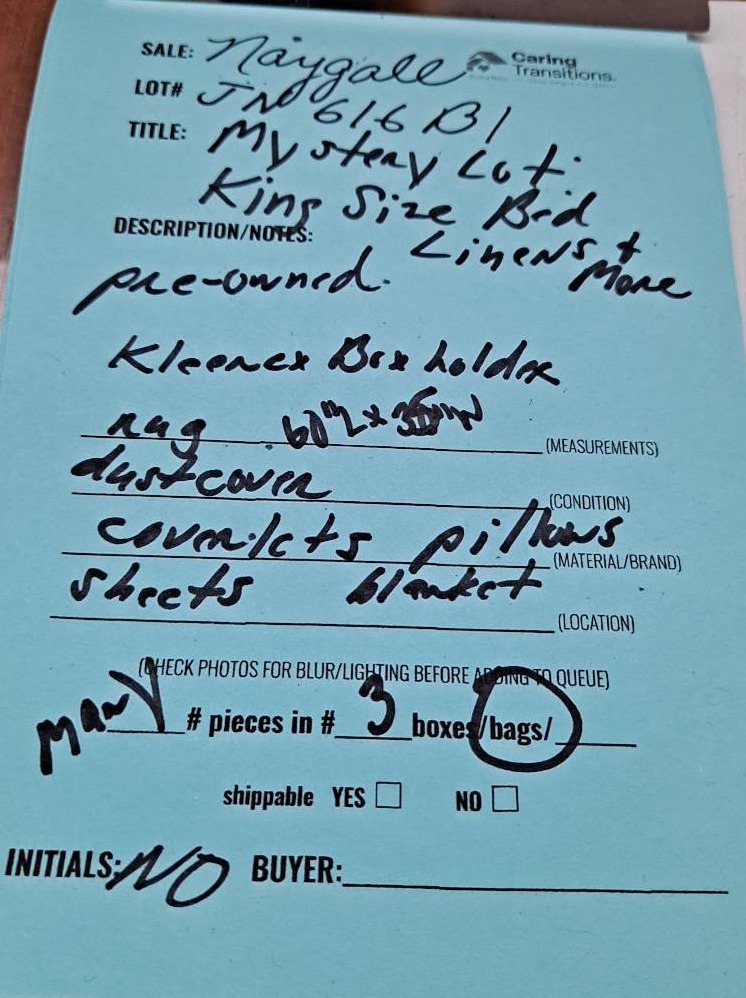 SALE: Naygall
Caring Transitions
LOT# JN 616 B1
TITLE: Mystery Lot.
King Size Bed
DESCRIPTION/NOTES: Linens + More
pre-owned.
Kleenex Box holder
rug 60"L x W (MEASUREMENTS)
dustcover (CONDITION)
coverlets pillows (MATERIAL/BRAND)
sheets blanket (LOCATION)
(CHECK PHOTOS FOR BLUR/LIGHTING BEFORE ADDING TO QUEUE)
many # pieces in # 3 boxes/bags/
shippable YES NO
INITIALS: NO BUYER: